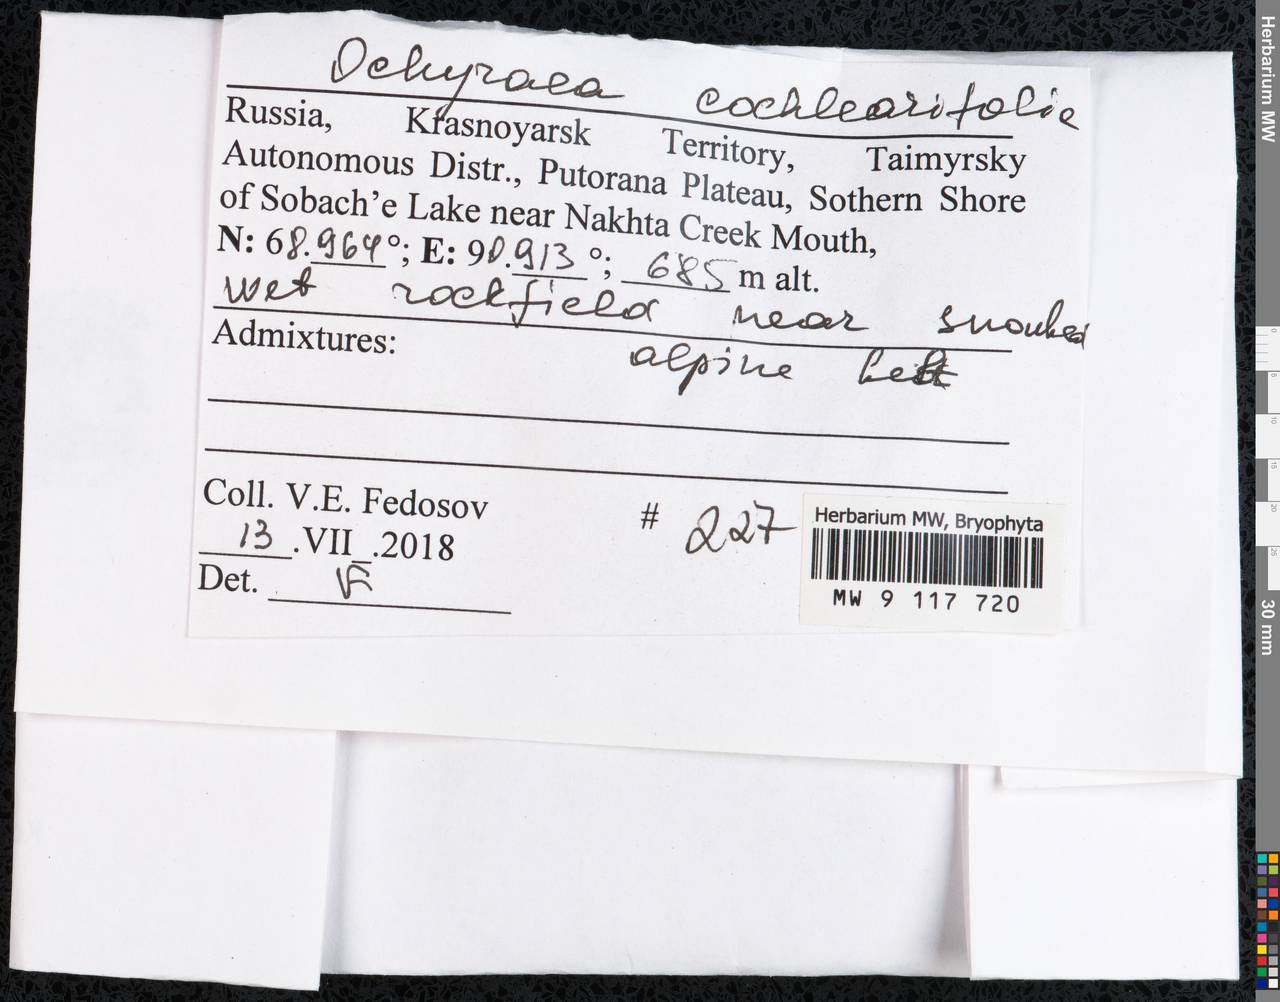 Ochyraea cochlearifolia
Russia, Krasnoyarsk Territory, Taimyrsky
Autonomous Distr., Putorana Plateau, Sothern Shore
of Sobach'e Lake near Nakhta Creek Mouth,
N: 68.964°; E: 90.913°; 685 m alt.
wet rockfield near snowbed
Admixtures: alpine belt
Coll. V.E. Fedosov
# 227
13.VII_.2018
Det. VF
Herbarium MW, Bryophyta
MW 9 117 720
Herbarium MW
0
5
10
15
20
25
30 mm